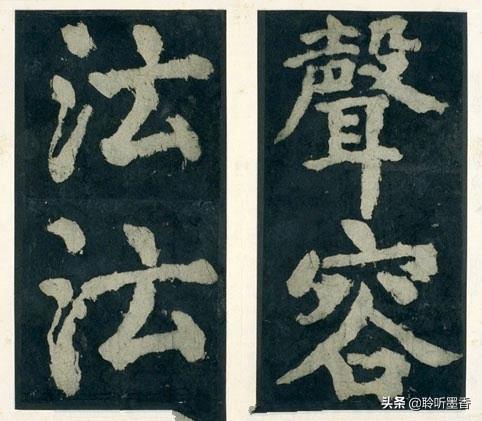 聲容
法法
头条 @聆听墨香